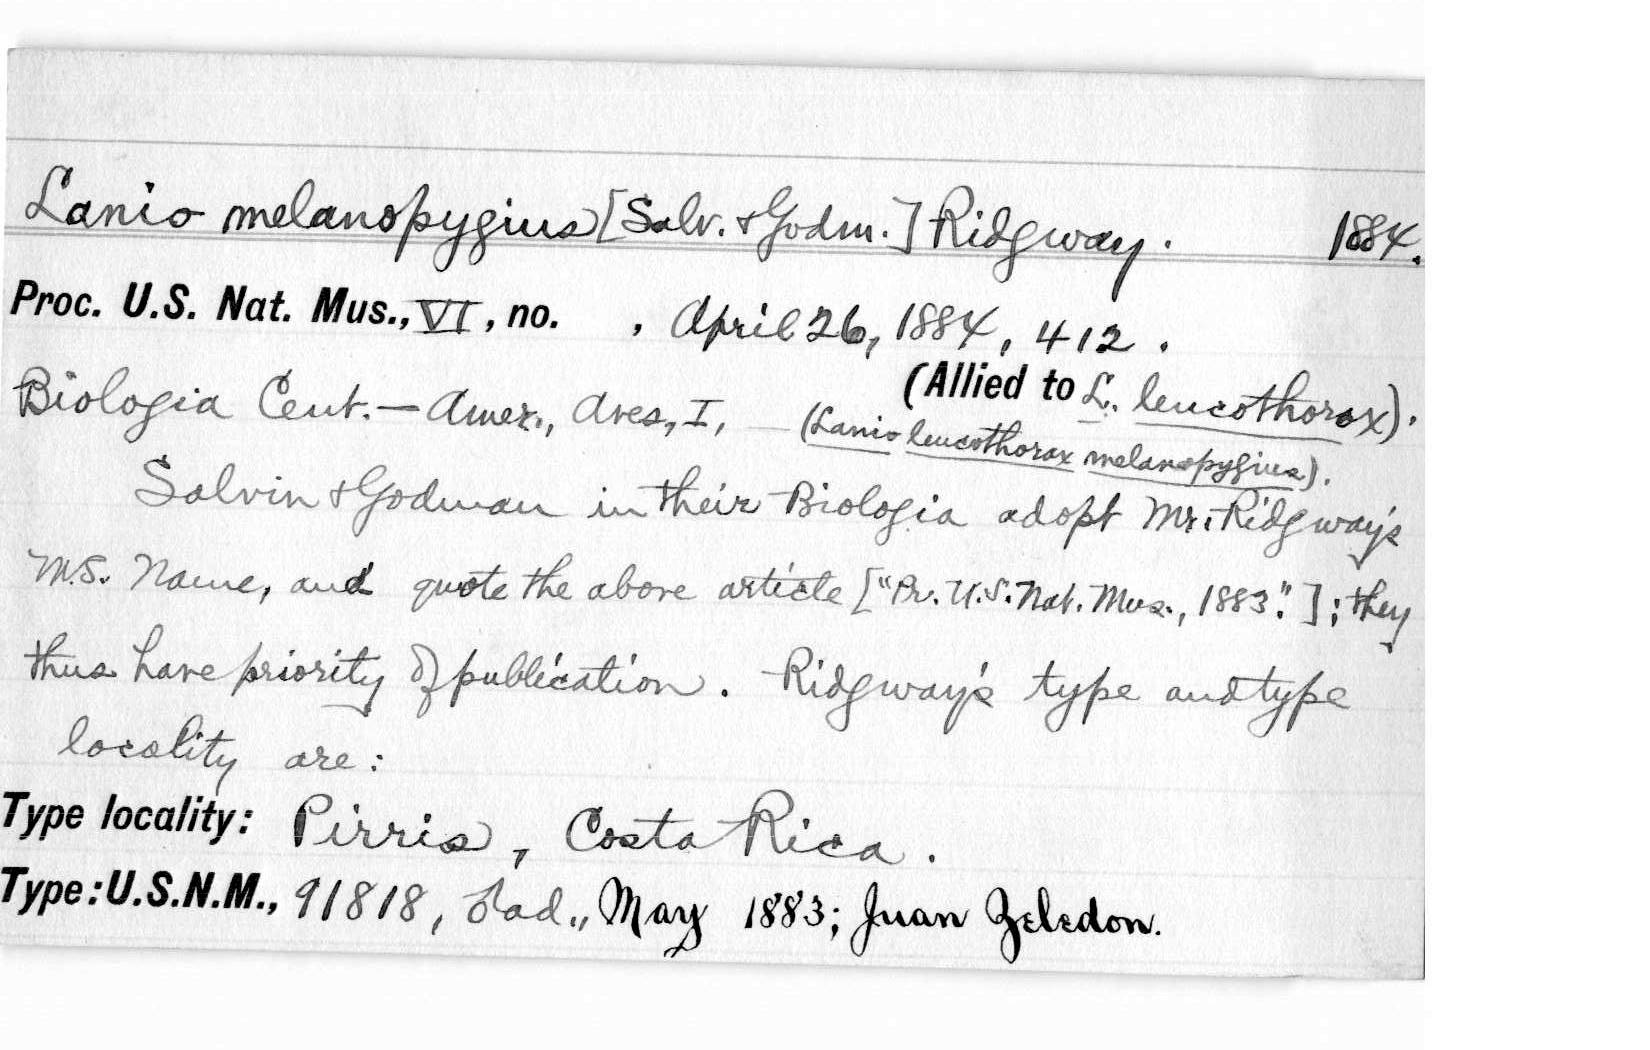 Lanio melanopygius [Salv. & Godm.] Ridgway. 1884.
Proc. U.S. Nat. Mus., VI, no. , April 26, 1884, 412.
(Allied to L. leucothorax).
Biologia Cent.-Amer., Aves, I, (Lanio leucothorax melanopygius).
Salvin & Godman in their Biologia adopt Mr. Ridgway's
M.S. Name, and quote the above article ["Pr. U.S. Nat. Mus., 1883."]; they
thus have priority of publication. Ridgway's type and type
locality are:
Type locality: Pirris, Costa Rica.
Type: U.S.N.M., 91818, ad., May 1883; Juan Zeledon.